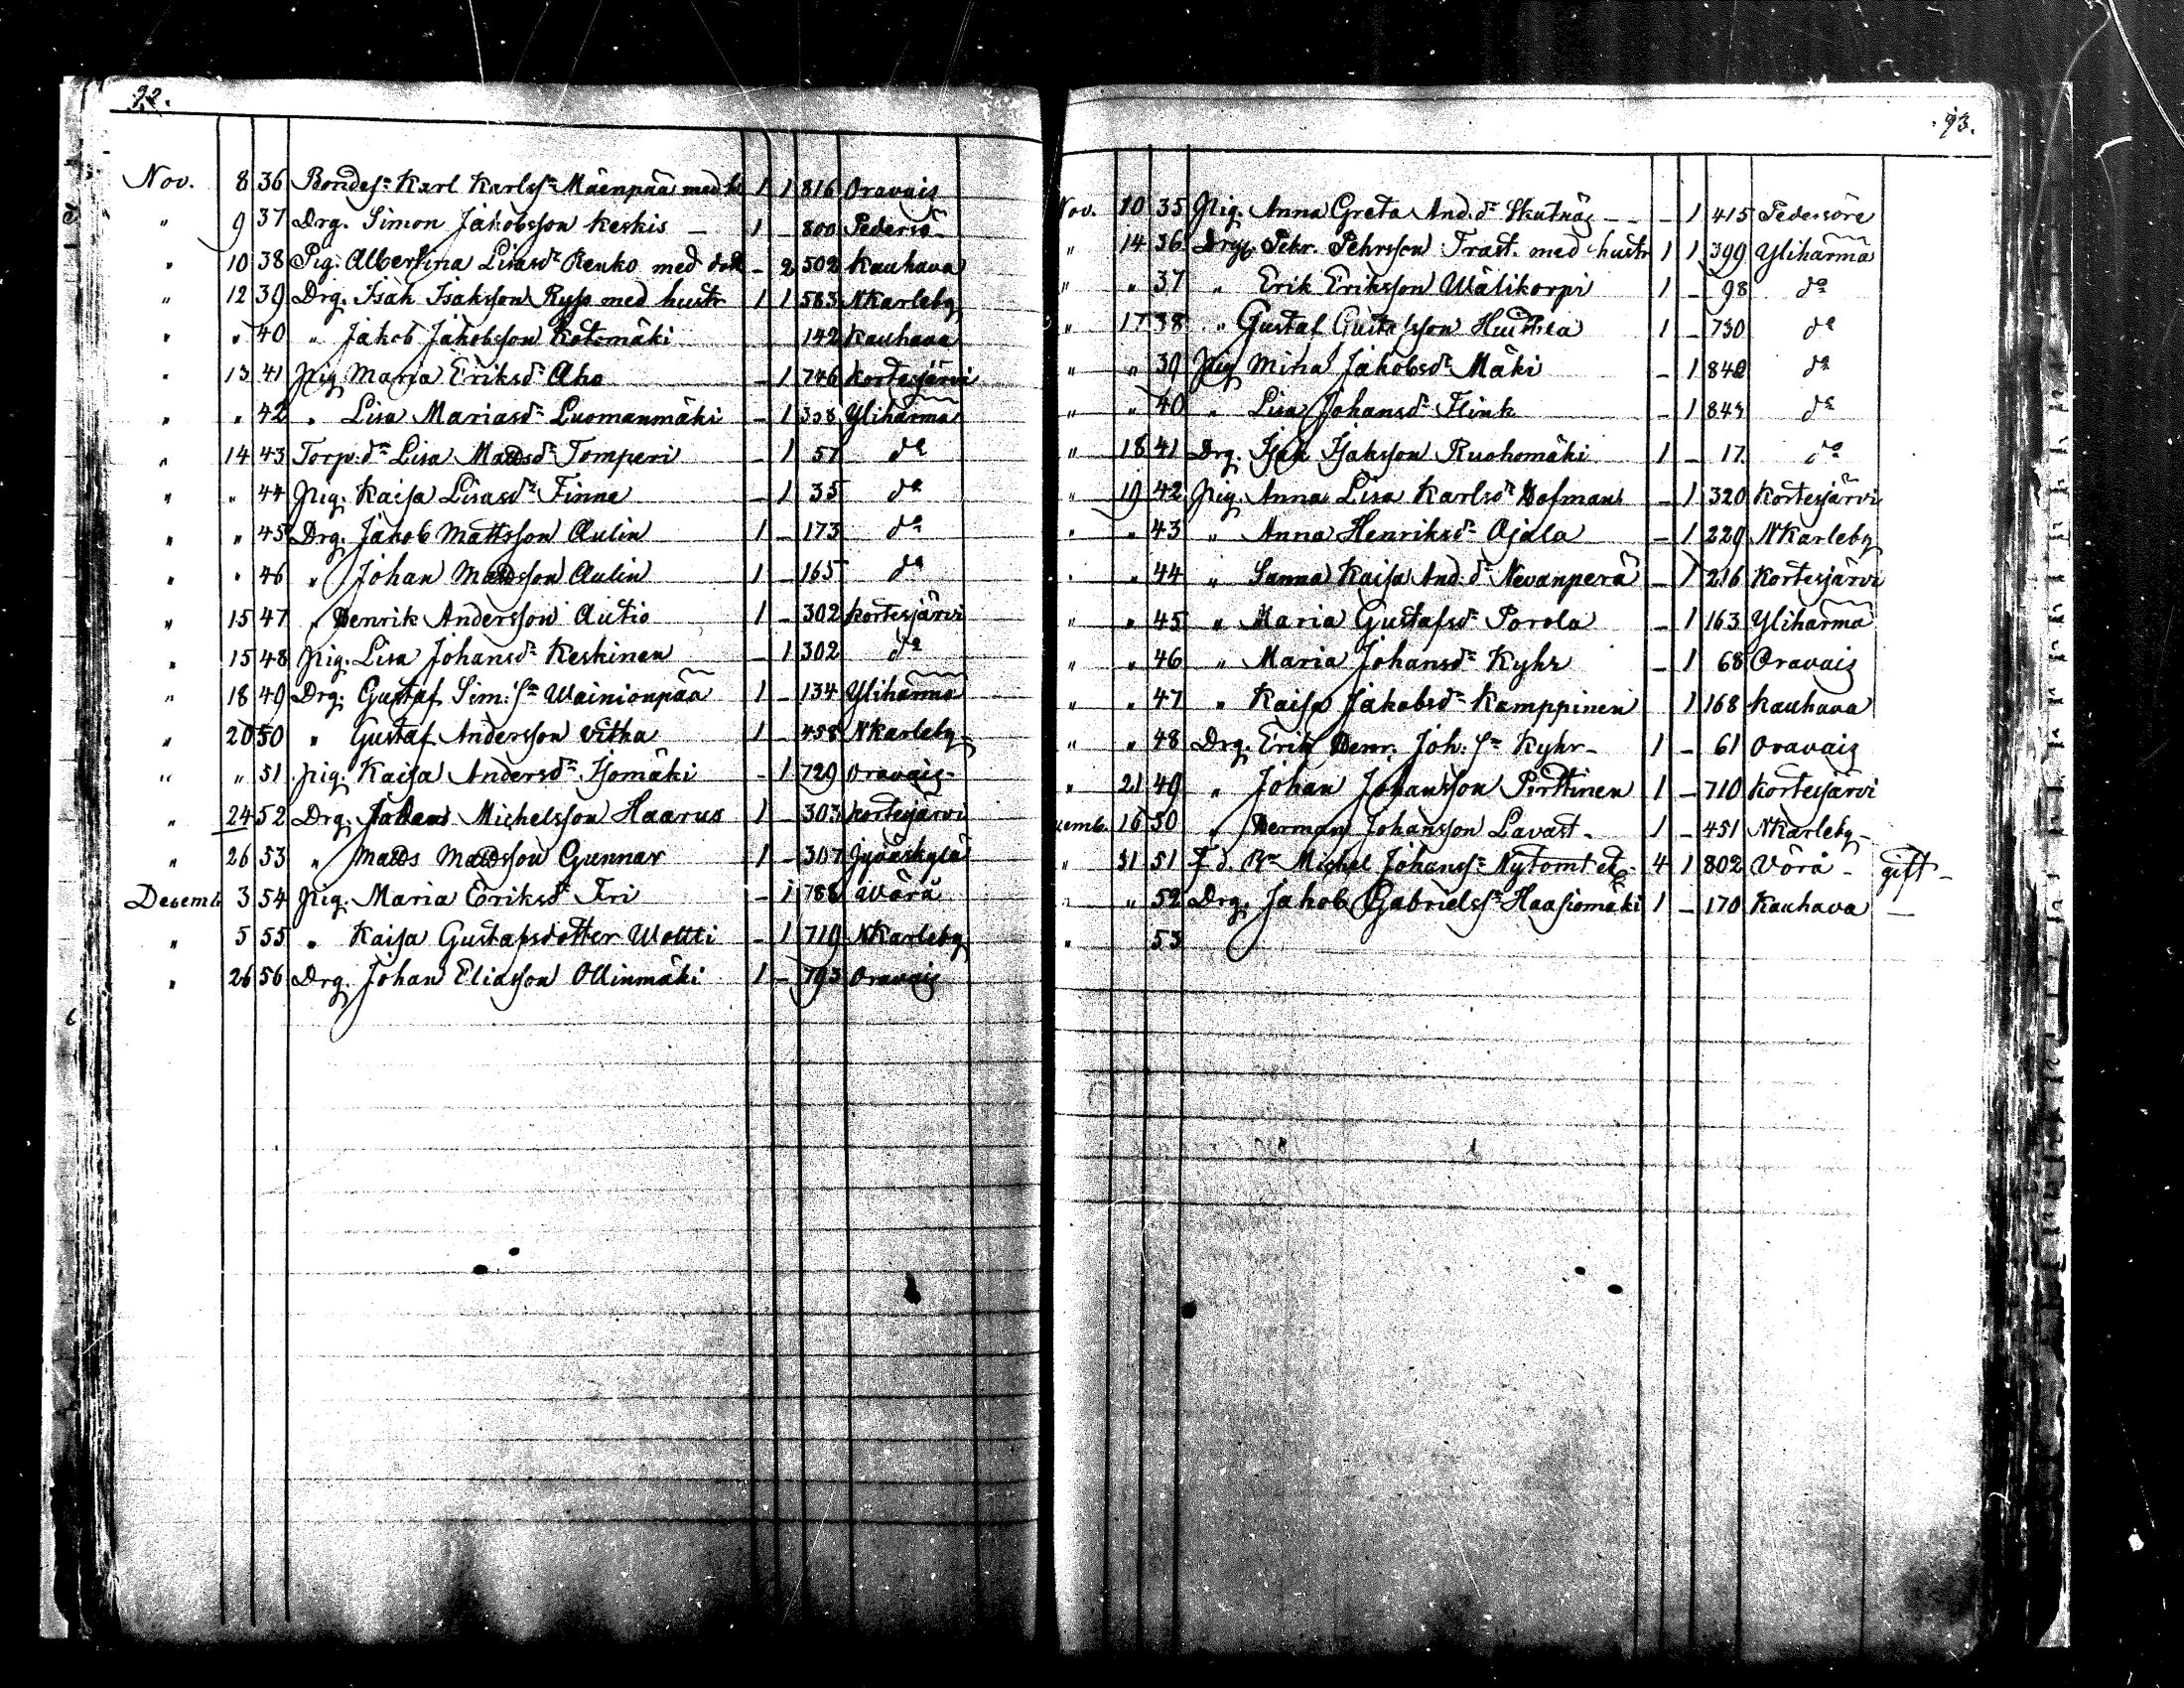 92.
Nov. 8 36 Bondes: Karl Karlss: Mäenpää med h 1 1 816 Oravais
" 9 37 Drg. Simon Jakobsson Keskis - 1 - 800 Pedersö-
" 10 38 Pig. Albertina Lisasd: Renko med dott - 2 502 Kauhava
" 12 39 Drg. Isak Isaksson Ryss med hustr 1 1 583 NKarleby
" " 40 " Jakob Jakobsson Kotomäki 142 Kauhava
" 13 41 Pig Maria Eriksd: Aho - 1 746 Kortesjärvi
" " 42 " Lisa Mariasd: Luomanmäki - 1 358 Ylihärmä
" 14 43 Torp.d: Lisa Mattsd: Tomperi - 1 57 do
" " 44 Pig. Kaisa Lisasd: Finne - 1 35 do
" " 45 Drg. Jakob Mattsson Aulin 1 - 173 do
" " 46 " Johan Mattsson Aulin 1 - 165 do
" 15 47 " Henrik Andersson Autio 1 - 302 Kortesjärvi
" 15 48 Pig. Lisa Johansd: Keskinen - 1 302 do
" 18 49 Drg. Gustaf Sim: Sn Wainionpää 1 - 134 Ylihärmä
" 20 50 " Gustaf Andersson Vitka 1 - 458 NKarleby
" " 51 Pig. Kaisa Andersd: Isomäki - 1 729 Oravais-
" 24 52 Drg. Michelsson Haarus 1 - 303 Kortesjärvi
" 26 53 " Matts Mattsson Gunnar 1 - 307 Jyväskylä
Decemb. 3 54 Pig. Maria Eriksd: Fri - 1 786 Wörå
" 5 55 " Kaisa Gustafsdotter Woltti - 1 719 NKarleby
" 26 56 Drg. Johan Eliasson Ollinmäki 1 - 793 Oravais
93.
Nov. 10 35 Pig. Anna Greta And.d: Skutnäs - - 1 415 Pedersöre
" 14 36 Drg. Pehr. Pehrsson Trast. med hustr 1 1 399 Ylihärmä
" " 37 " Erik Eriksson Wälikorpi 1 - 98 do
" 17 38 " Gustaf Gustafsson Huhtala 1 - 730 do
" " 39 Pig Mina Jakobsd: Mäki - 1 842 do
" " 40 " Lisa Johansd: Flink - 1 843 do
" 18 41 Drg. Isak Isaksson Ruohomäki 1 - 17. do
" 19 42 Pig. Anna Lisa Karlsd: Hofmans - 1 320 Kortesjärvi
" " 43 " Anna Henriksd: Ojala - 1 229 NKarleby
" " 44 " Sanna Kaisa And:d: Nevanperä - 1 216 Kortesjärvi
" " 45 " Maria Gustafsd: Porola - 1 163 Ylihärmä
" " 46 " Maria Johansd: Kyhr - 1 68 Oravais
" " 47 " Kaisa Jakobsd: Kamppinen 1 168 Kauhava
" " 48 Drg. Erik Henr: Joh: Sn Kyhr- 1 - 61 Oravais
" 21 49 " Johan Johansson Pirttinen 1 - 710 Kortesjärvi
cemb. 16 50 " Herman Johansson Lavast- 1 - 451 NKarleby-
" 31 51 F.d. Bn Michel Johanss: Nytomt etc- 4 1 802 Vörå - gift-
" " 52 Drg. Jakob Gabrielss: Haasiomäki 1 - 170 Kauhava -
" 53